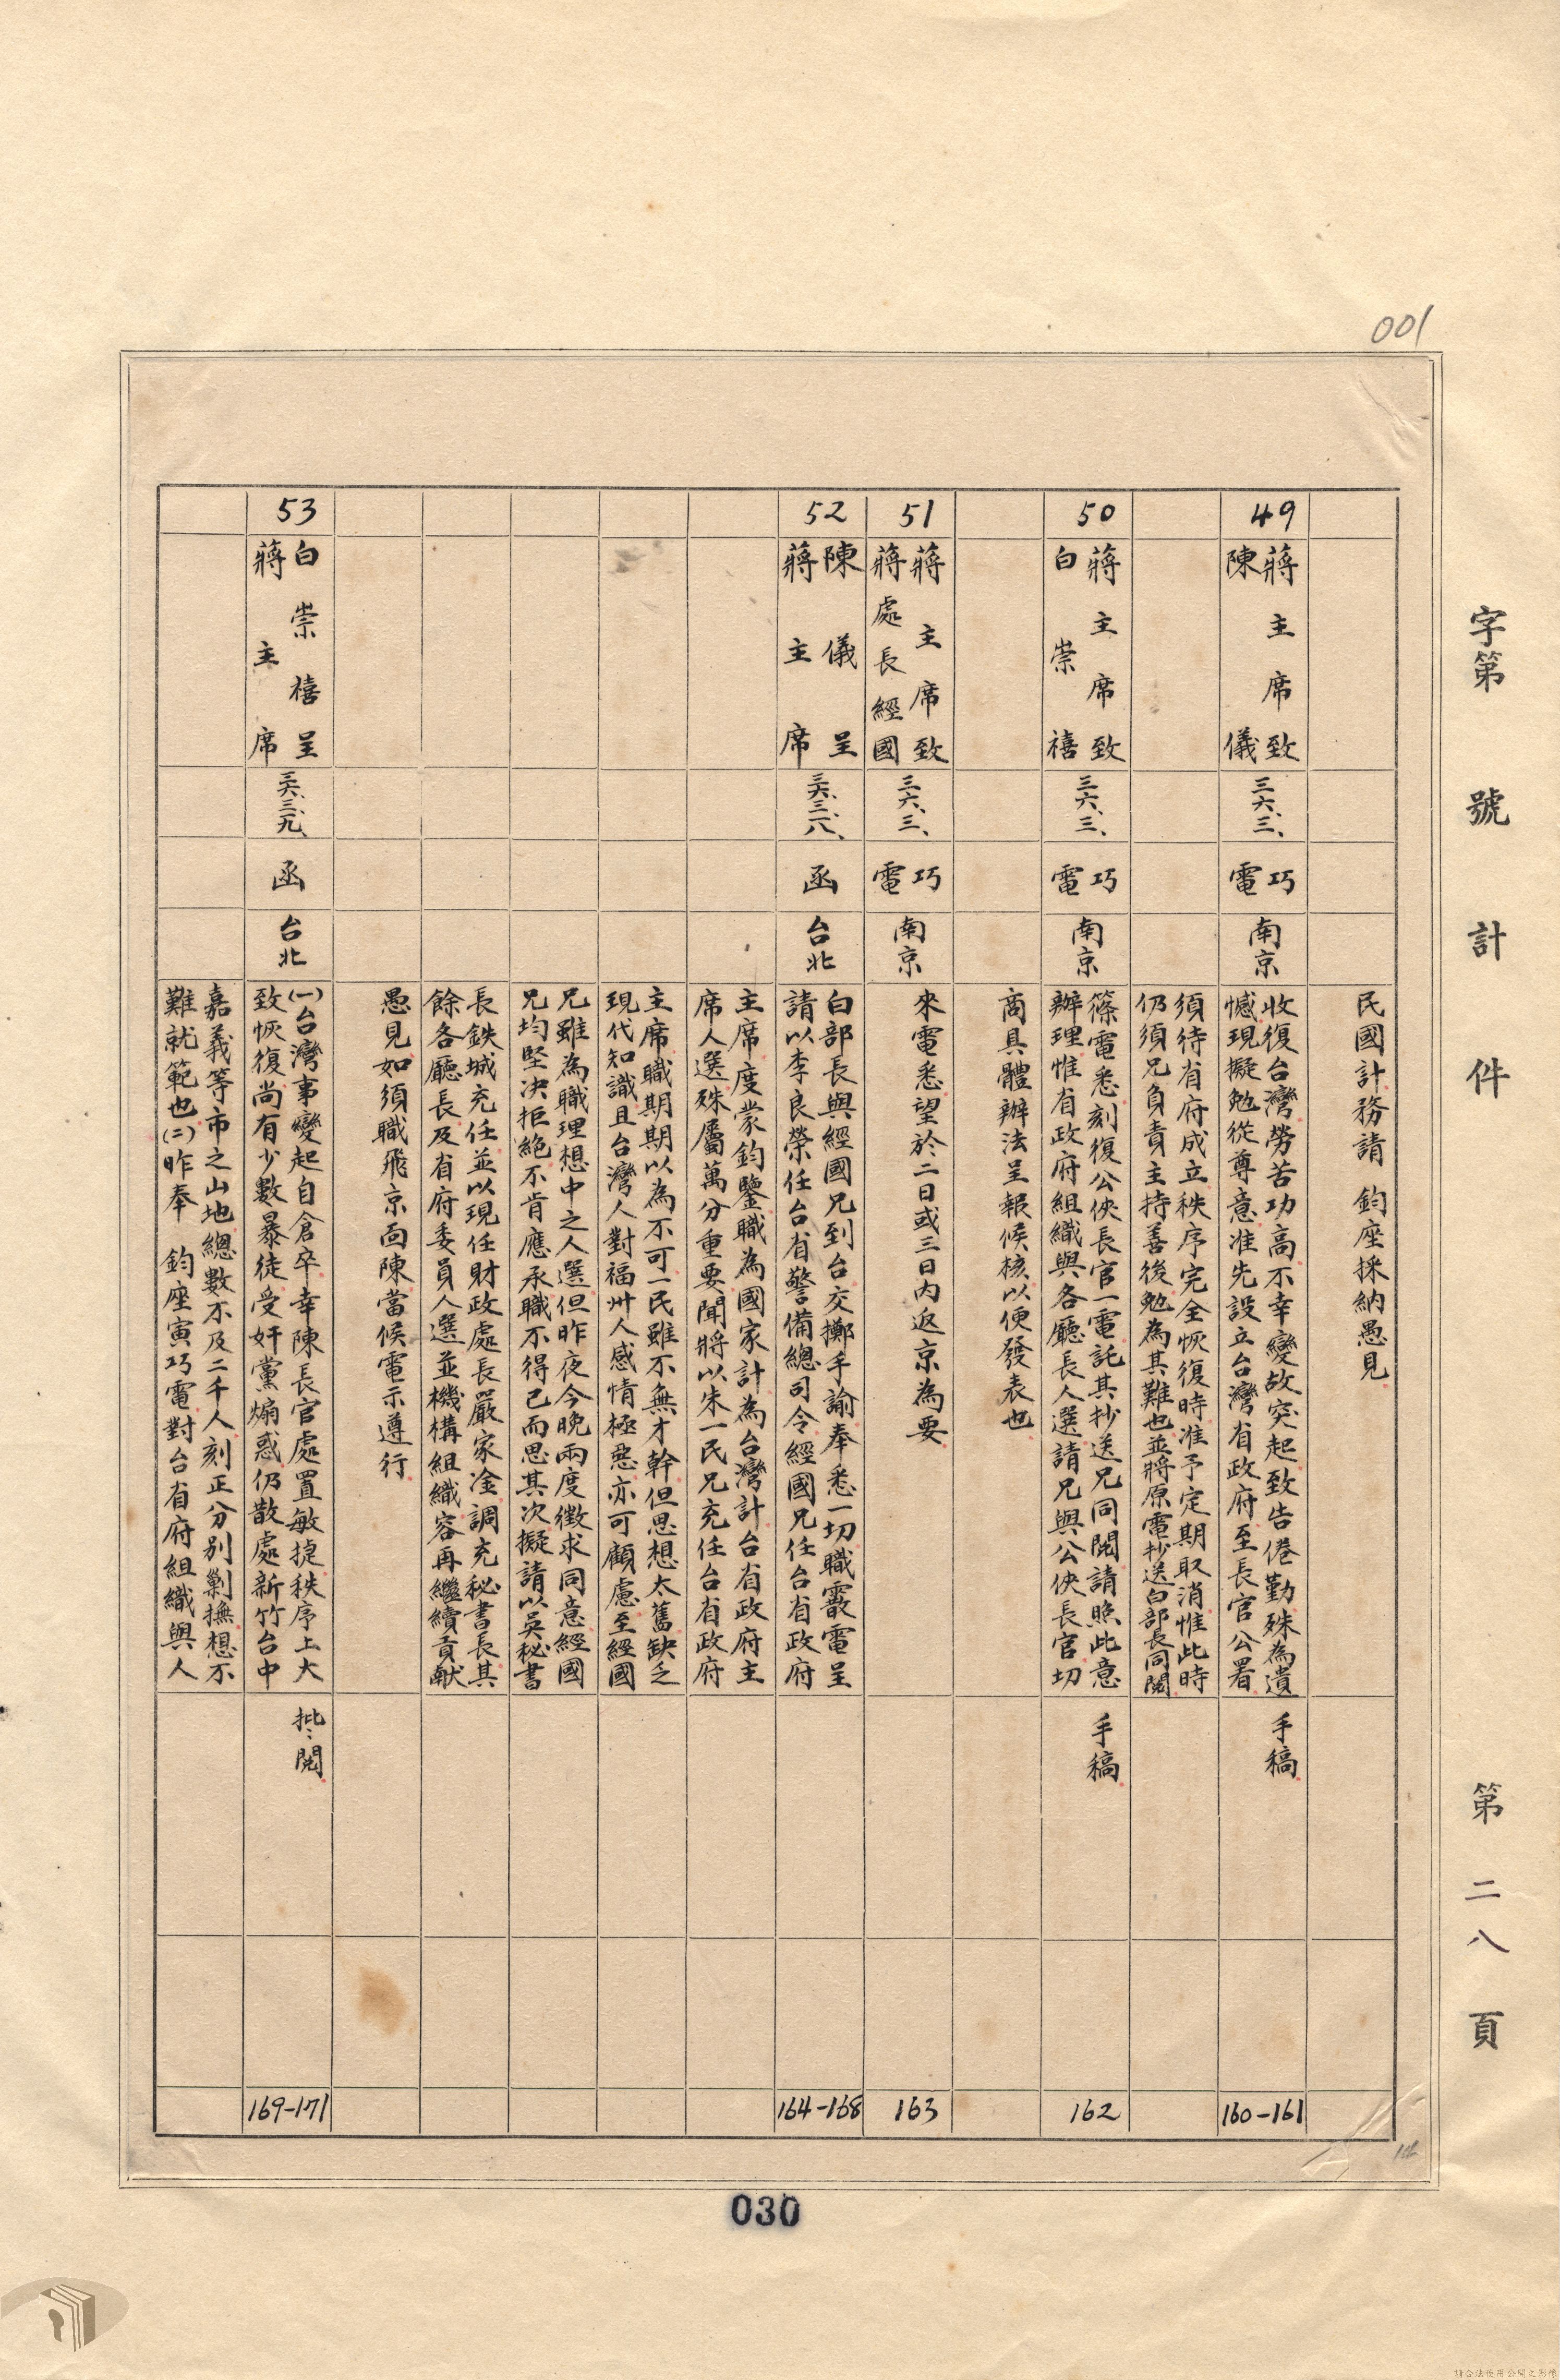 001
字第　號計　件　第二八頁
民國計務請　鈞座採納愚見
49
蔣主席致
陳儀
三六、三、
巧
電
南京
收復台灣勞苦功高不幸變故突起致告倦勤殊為遺
憾現擬勉從尊意准先設立台灣省政府至長官公署
須待省府成立秩序完全恢復時准予定期取消惟此時
仍須兄負責主持善後勉為其難也並將原電抄送白部長同閱
手稿
160-161
50
蔣主席致
白崇禧
三六、三、
巧
電
南京
篠電悉刻復公俠長官一電託其抄送兄同閱請照此意
辦理惟省政府組織與各廳長人選請兄與公俠長官切
商具體辦法呈報候核以便發表也
手稿
162
51
蔣主席致
蔣處長經國
三六、三、
巧
電
南京
來電悉望於二日或三日內返京為要
163
52
陳儀呈
蔣主席
三六、三、一八、
函
台北
白部長與經國兄到台交擲手諭奉悉一切職霰電呈
請以李良榮任台省警備總司令經國兄任台省政府
主席度蒙鈞鑒職為國家計為台灣計台省政府主
席人選殊屬萬分重要聞將以朱一民兄充任台省政府
主席職期期以為不可一民雖不無才幹但思想太舊缺乏
現代知識且台灣人對福州人感情極惡亦可顧慮至經國
兄雖為職理想中之人選但昨夜今晚兩度徵求同意經國
兄均堅決拒絕不肯應承職不得已而思其次擬請以吳秘書
長鉄城充任並以現任財政處長嚴家淦調充秘書長其
餘各廳長及省府委員人選並機構組織容再繼續貢献
愚見如須職飛京面陳當候電示遵行
164-168
53
白崇禧呈
蔣主席
三六、三、一九、
函
台北
(一)台灣事變起自倉卒幸陳長官處置敏捷秩序上大
致恢復尚有少數暴徒受奸黨煽惑仍散處新竹台中
嘉義等市之山地總數不及二千人刻正分別剿撫想不
難就範也(二)昨奉　鈞座寅巧電對台省府組織與人
批：閱
169-171
030
請合法使用公開之影像